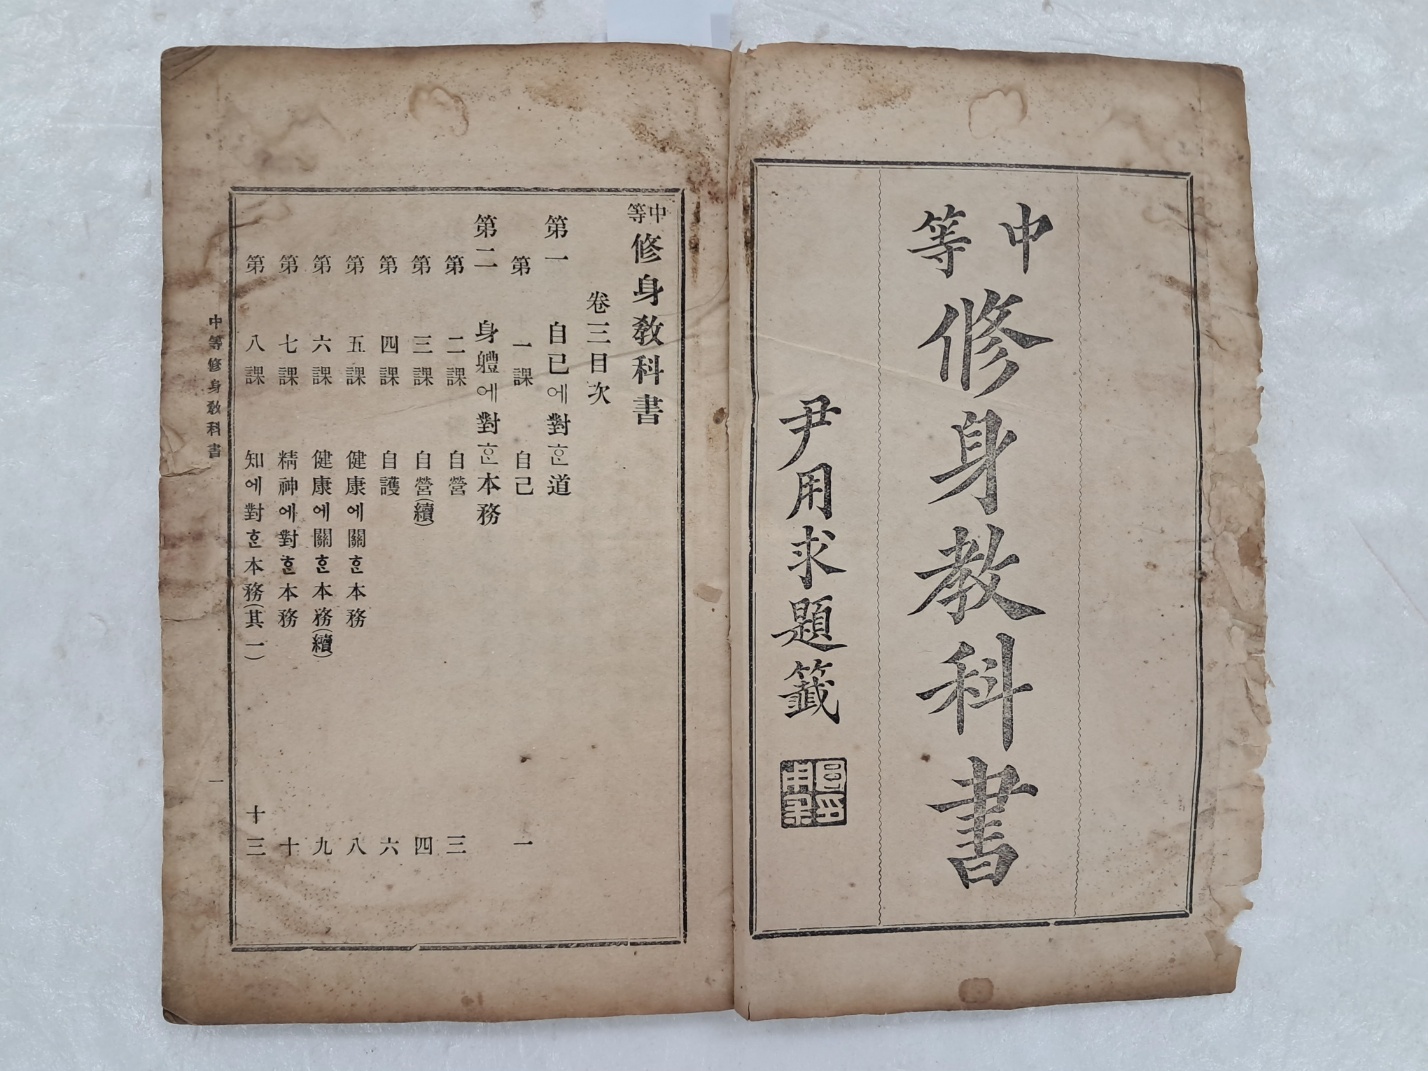 中等 修身教科書
尹用求題籤
中等 修身教科書
卷三目次
第一 自己에對ᄒᆞᆫ道
第一課 自己 一
第二 身軆에對ᄒᆞᆫ本務
第二課 自營 三
第三課 自營(續) 四
第四課 自護 六
第五課 健康에關ᄒᆞᆫ本務 八
第六課 健康에關ᄒᆞᆫ本務(續) 九
第七課 精神에對ᄒᆞᆫ本務 十
第八課 知에對ᄒᆞᆫ本務(其一) 十三
中等修身教科書 一